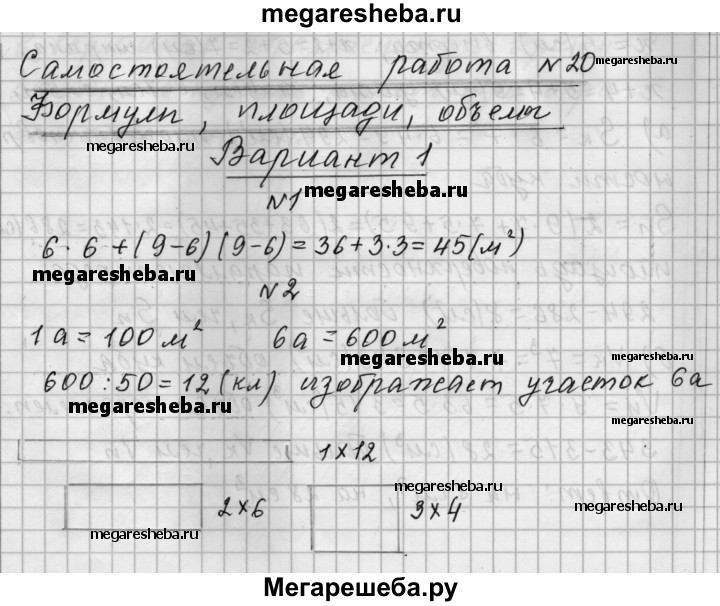 megaresheba.ru
Самостоятельная работа №20
megaresheba.ru
Формулы, площади, объемы
megaresheba.ru
Вариант 1
№1 megaresheba.ru
6 · 6 + (9-6) (9-6) = 36 + 3·3 = 45 (м²)
megaresheba.ru
№2
1 а = 100 м² 6а = 600 м²
megaresheba.ru megaresheba.ru
600 : 50 = 12 (кл) изображает участок 6а
megaresheba.ru megaresheba.ru
1×12
megaresheba.ru
2×6 3×4
megaresheba.ru megaresheba.ru
Мегарешеба.ру